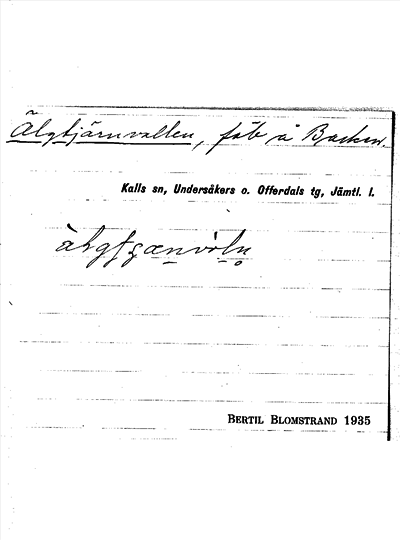 Älgtjärnvallen, fäb å Backen.
Kalls sn, Undersåkers o. Offerdals tg, Jämtl. l.
BERTIL BLOMSTRAND 1935